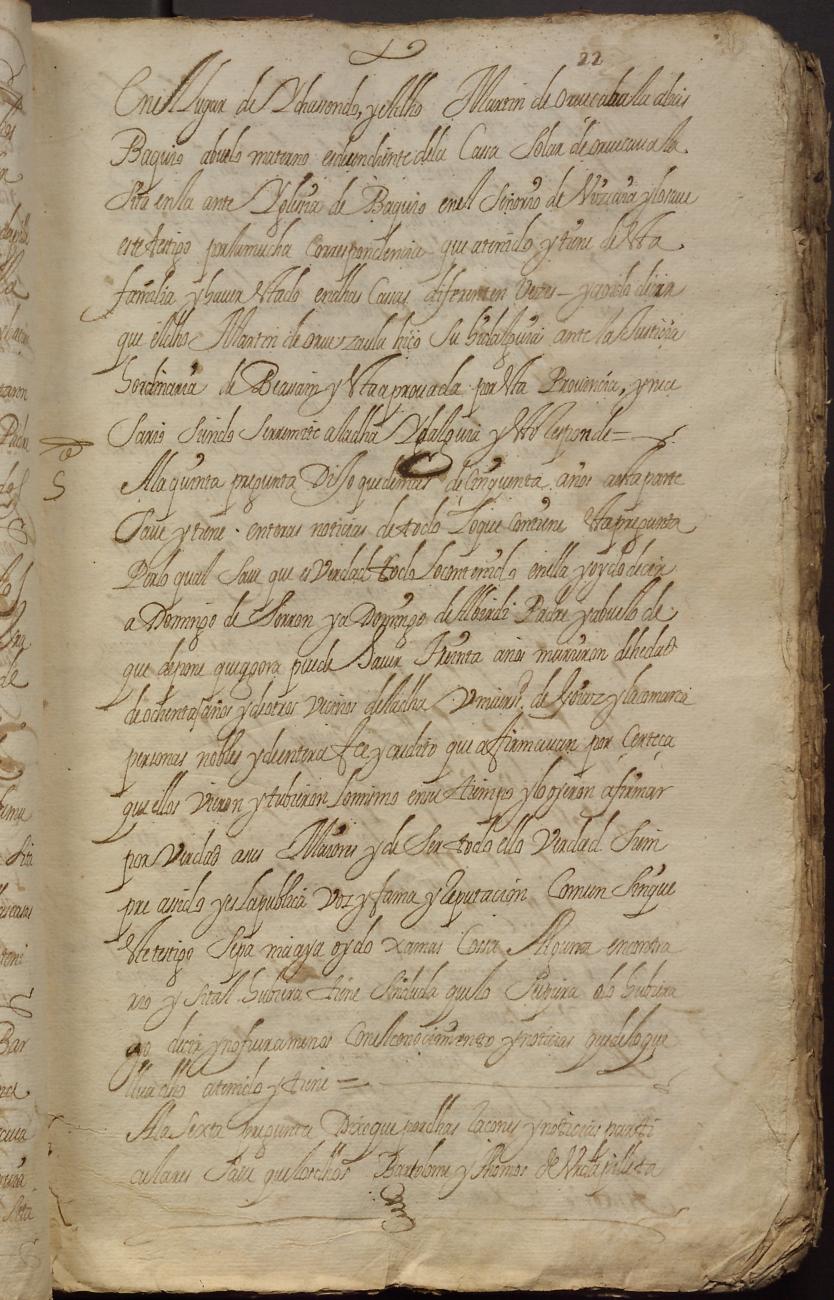 22
en el lugar de Ychasondo, y el dho Martin de oruecabala alias
Baquio abuelo materno es desendiente dela Casa Solar de oruecauala
sita en la ante Yglesia de Baquio en el Señorio de Vizcaia y lo saue
este testigo por la mucha Correspondencia que a tenido y tiene de sta
familia y hauer stado en dhas Casas diferentes veces y a oido dicir
que el dho Martin de oruezaula hiço su hidalguia ante la Justicia
hordinaria de Beasain y sta aprouada por sta Prouincia, y nece
sario siendo se rremite a la dha Ydalguia y sto Responde =
5
A la quinta pregunta Dijo que demas de Cinquenta años a esta parte
Saue y tiene enteras noticias de todo Lo que Contiene sta pregunta
Por lo qual Saue que es Verdad todo Lo contenido en ella y oydo decir
a Domingo de y a Domingo de Padre y abuelo de
que depone que agora puede hauer Treinta años murieron de hedad
de ochenta años y de otros vecinos de la dha Vniuersd. de y la comarca
personas nobles y de entera fee y credito que afirmauan por Certeça
que ellos vieron y tubieron Lo mismo en su tiempo y lo oyeron afirmar
por Verdad a sus Maiores y de Ser todo ello Verdad Siem
pre a sido y es la publica Voz y fama y Reputacion Comun Sin que
ste testigo Sepa ni aya oydo xamas Cossa Alguna en contra
rio y si tall hubiera tiene sin duda que lo Supiera o lo hubiera
oydo dicir y no fuera menos Con el conocimiento y noticias que de lo que
lleua dho a tenido y tiene =
A la Sexta pregunta Dixo que por dhas raçones y noticias parti
culares Saue que los dhos Bartolome y Thomas de sta